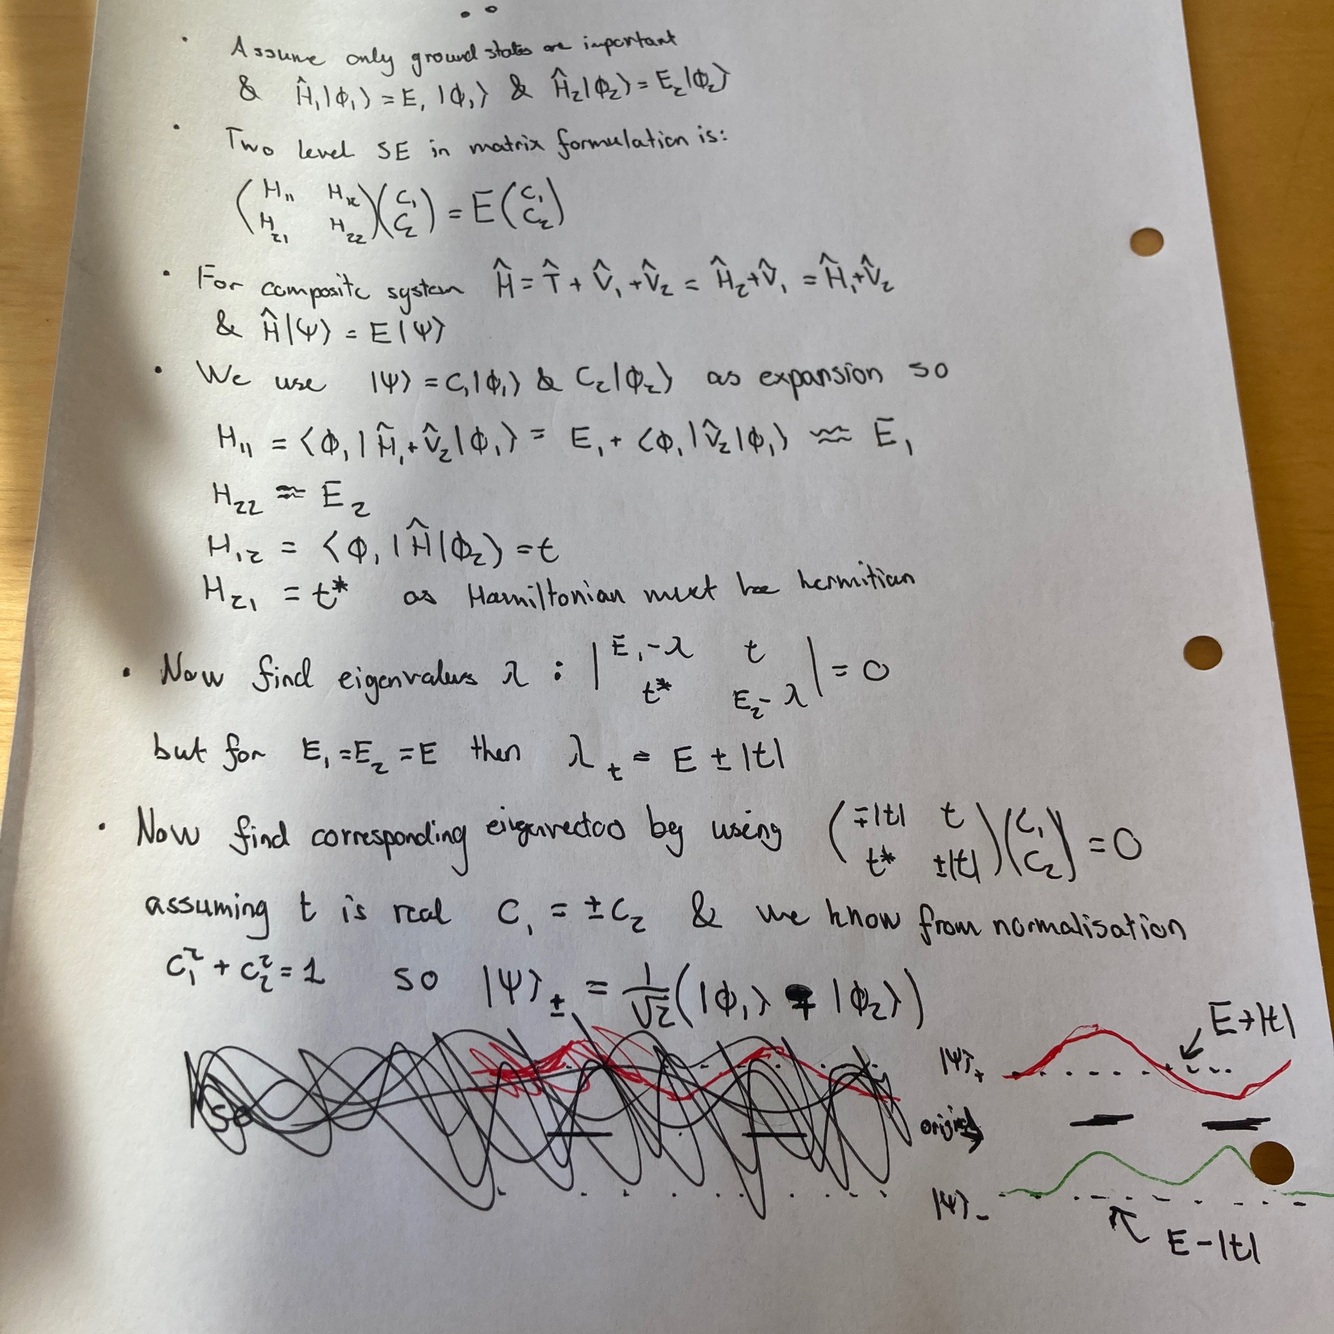 • Assume only ground states are important
& Ĥ₁|ϕ₁⟩ = E₁|ϕ₁⟩ & Ĥ₂|ϕ₂⟩ = E₂|ϕ₂⟩
• Two level SE in matrix formulation is:
(H₁₁ H₁₂; H₂₁ H₂₂)(C₁; C₂) = E(C₁; C₂)
• For composite system Ĥ = T̂ + V̂₁ + V̂₂ = Ĥ₂ + V̂₁ = Ĥ₁ + V̂₂
& Ĥ|Ψ⟩ = E|Ψ⟩
• We use |Ψ⟩ = C₁|ϕ₁⟩ & C₂|ϕ₂⟩ as expansion so
H₁₁ = ⟨ϕ₁|Ĥ₁ + V̂₂|ϕ₁⟩ = E₁ + ⟨ϕ₁|V̂₂|ϕ₁⟩ ≈ E₁
H₂₂ ≈ E₂
H₁₂ = ⟨ϕ₁|Ĥ|ϕ₂⟩ = t
H₂₁ = t* as Hamiltonian must be hermitian
• Now find eigenvalues λ : |E₁-λ t; t* E₂-λ| = 0
but for E₁ = E₂ = E then λ_t = E ± |t|
• Now find corresponding eigenvectors by using (∓|t| t; t* ±|t|)(C₁; C₂) = 0
assuming t is real C₁ = ±C₂ & we know from normalisation
C₁² + C₂² = 1 so |Ψ⟩± = 1/√2(|ϕ₁⟩ ∓ |ϕ₂⟩)
E+|t|
|Ψ⟩₊
original
|Ψ⟩₋
E-|t|